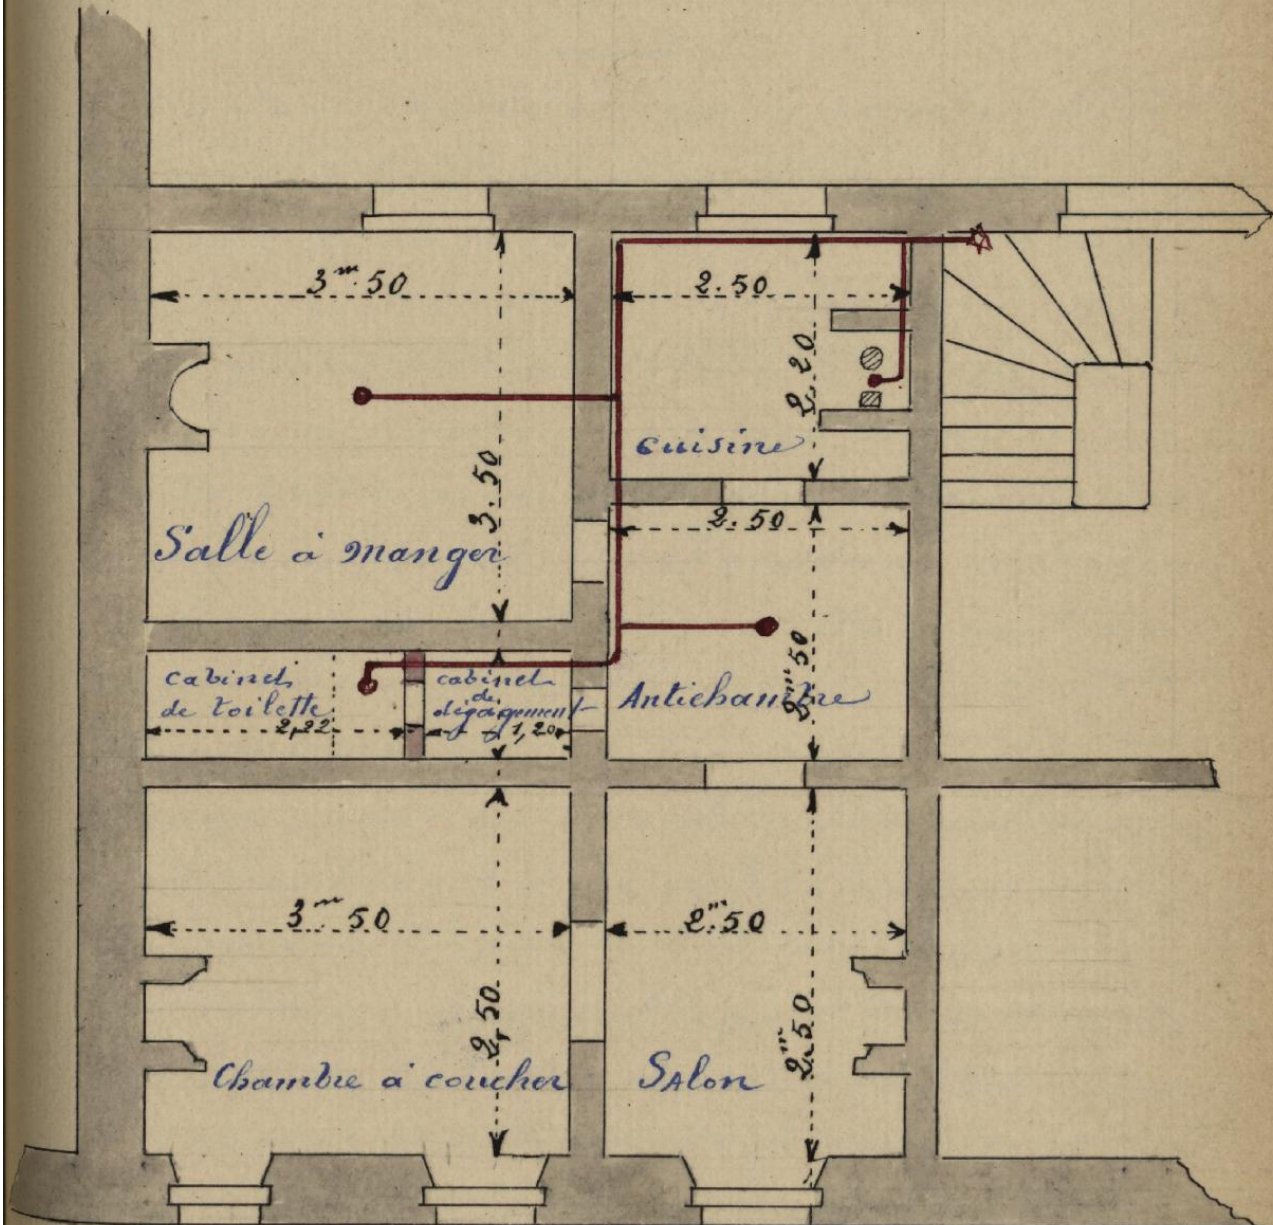 3m.50
2.50
2,20
cuisine
3.50
Salle à manger
2.50
2m50
cabinet
de toilette
2,22
cabinet
de
dégagement
1,20
Antichambre
3m50
2m.50
2,50
2m.50
Chambre à coucher
SAlon